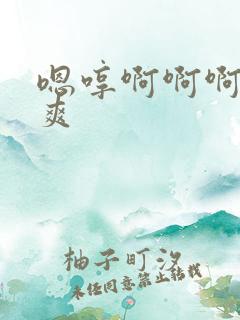 嗯哼啊啊啊
爽
柚子町汐
未经同意禁止转载